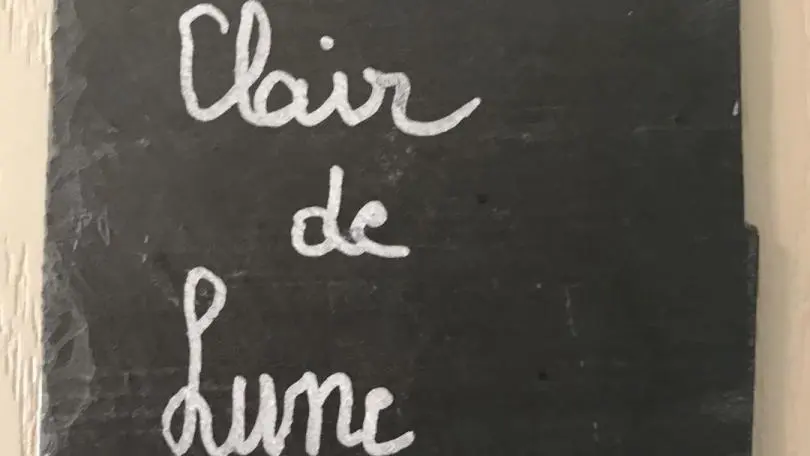 Clair
de
Lune